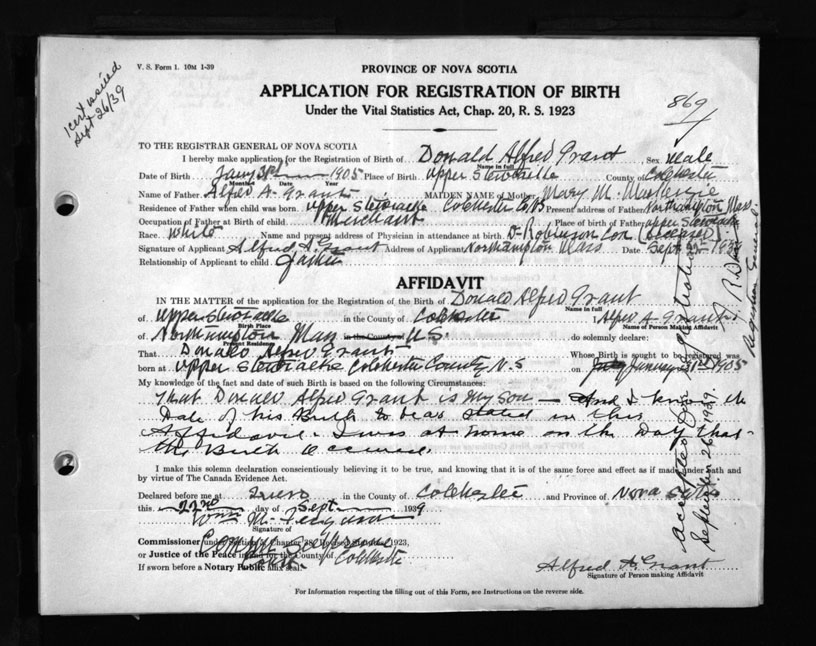 V. S. Form 1. 10M 1-39
1 cert issued
Sept 26/39
PROVINCE OF NOVA SCOTIA
APPLICATION FOR REGISTRATION OF BIRTH
Under the Vital Statistics Act, Chap. 20, R. S. 1923
869
TO THE REGISTRAR GENERAL OF NOVA SCOTIA
I hereby make application for the Registration of Birth of Donald Alfred Grant Sex Male
Name in full
Date of Birth Jany 31st 1905 Place of Birth Upper Stewiacke County of Colchester
Month Date Year
Name of Father Alfred A. Grant MAIDEN NAME of Mother Mary M. MacKenzie
Residence of Father when child was born Upper Stewiacke Colchester Co. Present address of Father Northampton Mass
Occupation of Father at Birth of child Merchant Place of birth of Father Upper Stewiacke
Race White Name and present address of Physician in attendance at birth Dr Robinson Cox (Deceased)
Signature of Applicant Alfred A. Grant Address of Applicant Northampton Mass Date Sept 1939
Relationship of Applicant to child Father
AFFIDAVIT
IN THE MATTER of the application for the Registration of the Birth of Donald Alfred Grant
Name in full
of Upper Stewiacke in the County of Colchester I, Alfred A. Grant
Birth Place Name of Person Making Affidavit
of Northampton Mass in the County of U.S. do solemnly declare:
Present Residence
That Donald Alfred Grant Whose Birth is sought to be registered was
born at Upper Stewiacke Colchester County N.S on January 31st 1905
My knowledge of the fact and date of such Birth is based on the following Circumstances:
That Donald Alfred Grant is my son — and I know the
Date of his Birth to be as stated in this
Affidavit. I was at home on the Day that
the Birth Occured.
I make this solemn declaration conscientiously believing it to be true, and knowing that it is of the same force and effect as if made under oath and
by virtue of The Canada Evidence Act.
Declared before me at Truro in the County of Colchester and Province of Nova Scotia
this 22nd day of Sept 1939
Wm M. Ferguson
Signature of
Commissioner under Section of Chapter 38, Revised Statutes 1923,
or Justice of the Peace in and for the County of Colchester
If sworn before a Notary Public affix seal.
Alfred A. Grant
Signature of Person making Affidavit
For Information respecting the filling out of this Form, see Instructions on the reverse side.
Accepted for registration
September 26th 1939
Registrar General